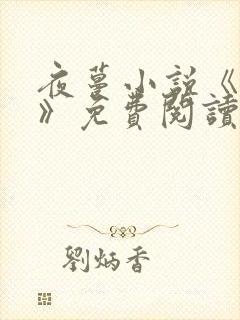 夜蔓小說《
》免費閱讀
劉炳香